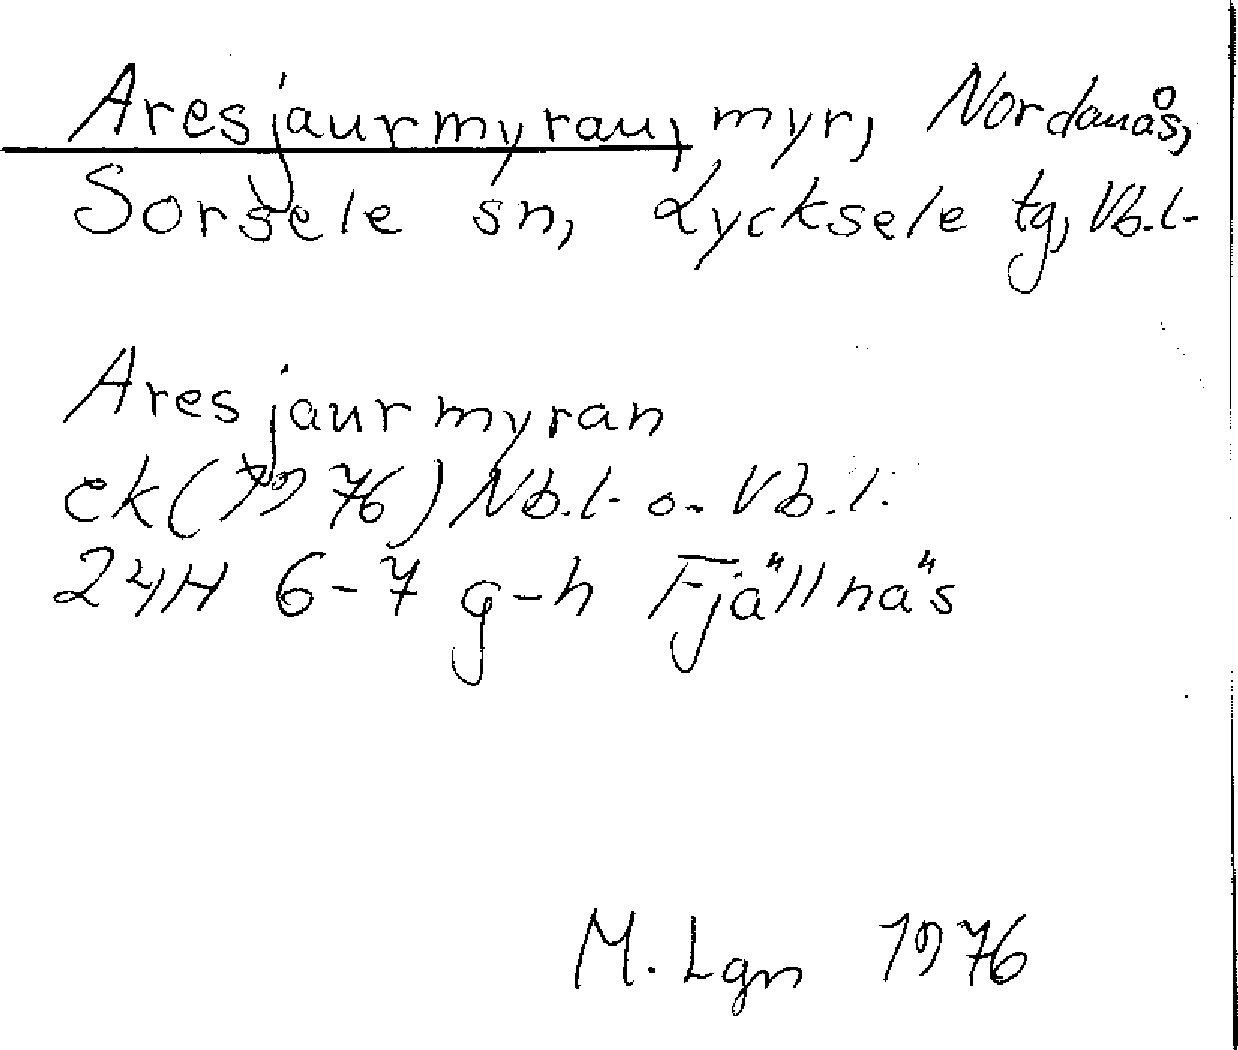 Aresjaurmyran, myr, Nordanås,
Sorsele sn, Lycksele tg, Vb.l.
Aresjaurmyran
ek (1976) Nb.l. o. Vb.l.
24H 6-7 g-h Fjällnäs
M. Lgn 1976